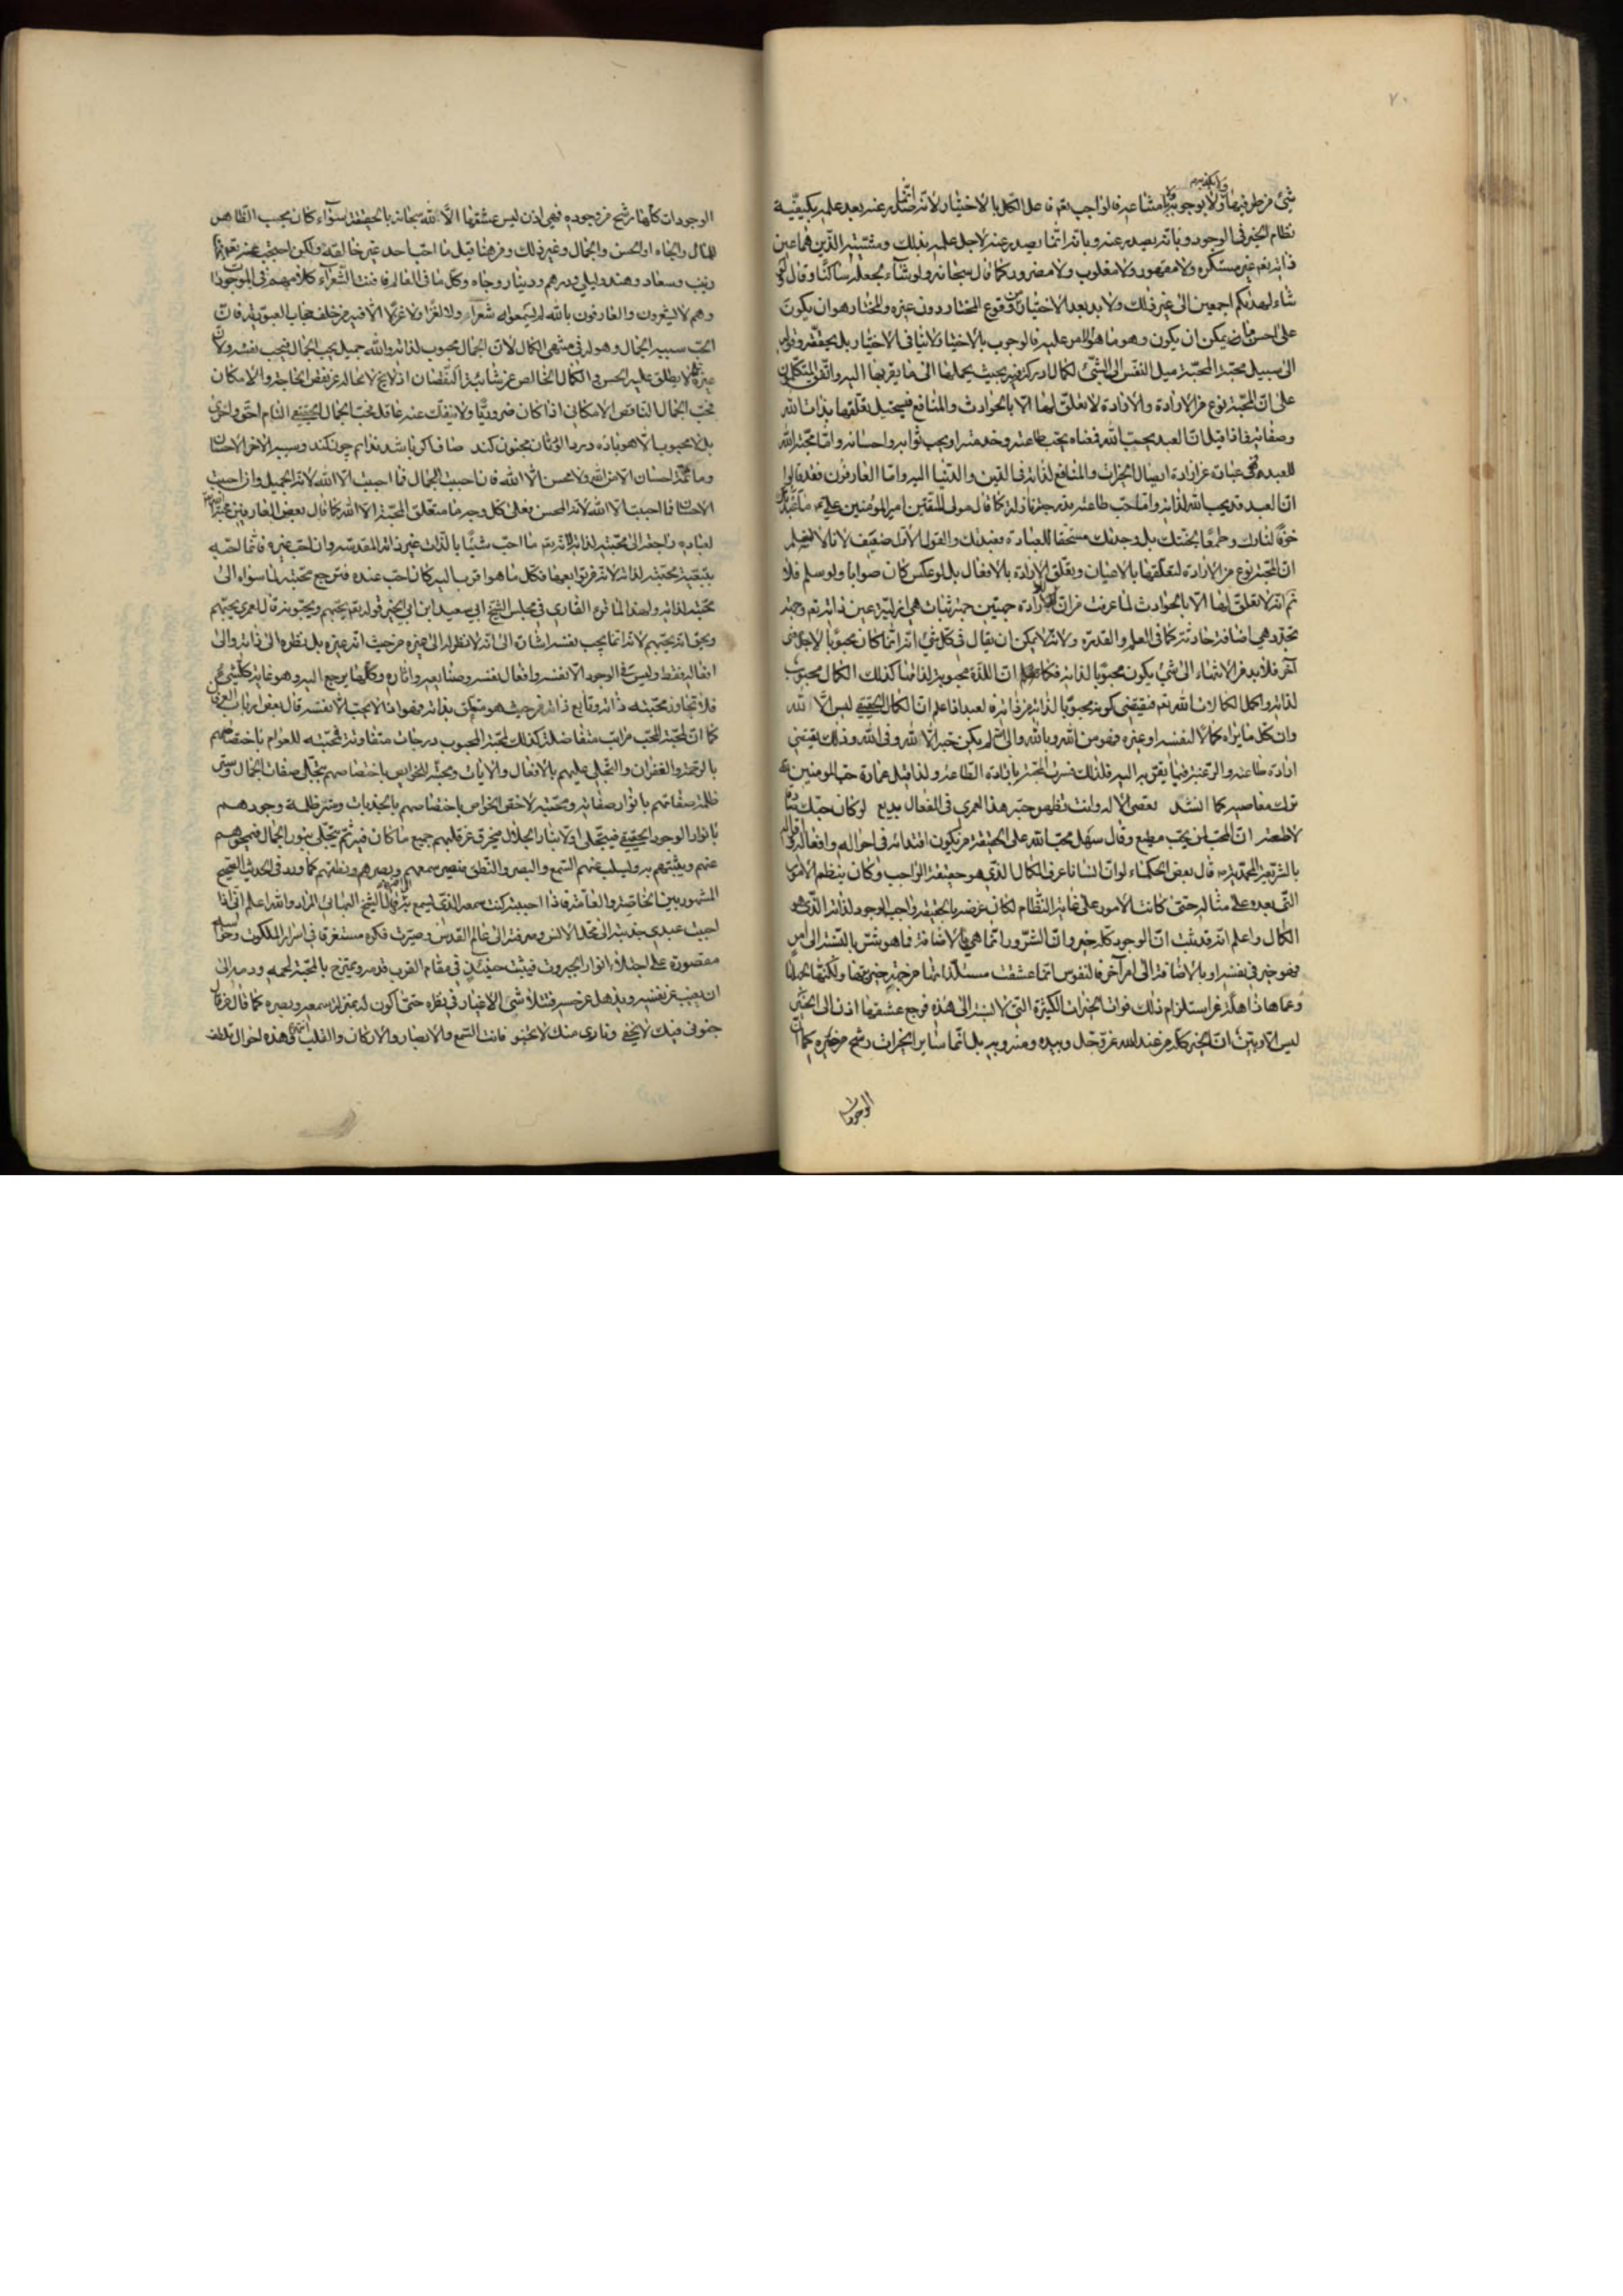 ٧٠
نظام الخير في الوجود وبانه يصدر عنه وبانه انما يصدر عنه لاجل علمه بذلك ومشيته الذين هما عين
ذاته تعالى غير مستكره ولا مقهور ولا مغلوب ولا مضرور كما قال سبحانه ولو شاء لجعله ساكنا وقال لو
شاء لهديكم اجمعين الى غير ذلك ولا بد بعد الاختيار من وقوع المختار دون غيره والمختار هو ان يكون
على احسن ما يمكن ان يكون وهو ما هو الامر عليه فالوجوب بالاختيار لا ينافي الاختيار بل يحققه وقوله
الى سبيل محبته المحبة ميل النفس الى الشئ لكمال ادركته فيه بحيث يحملها الى ما يقربها اليه واتفق المتكلمون
على ان المحبة نوع من الارادة والارادة لا تعلق لها الا بالحوادث والمنافع فيستحيل تعلقها بذات الله
وصفاته فاذا قيل ان العبد يحب الله فمعناه يحب طاعته وخدمته او يحب ثوابه واحسانه واما محبة الله
للعبد فهي عبارة عن ارادة ايصال الخيرات والمنافع لذاته في الدين والدنيا اليه واما العارفون فقد قالوا
ان العبد قد يحب الله لذاته واما حب طاعته فدرجة نازلة كما قال مولى المتقين امير المؤمنين ما عبدتك
خوفا لنارك وطمعا لجنتك بل وجدتك مستحقا للعبادة فعبدتك والقول الاول ضعيف لانا لا نعلم
ان المحبة نوع من الارادة لتعلقها بالاعيان وتعلق الارادة بالافعال بل لو عكس كان صوابا ولو سلم فلا
ثم انه لا تعلق لها الا بالحوادث لما عرفت من ان للارادة جهتين جهة ثبات هي ازلية عين ذاته تعالى وجهة
تجدد هي اضافة حادثة كما في العلم والقدرة ولانه لا يمكن ان يقال في كل شئ انه انما كان محبوبا لاجل شئ
آخر فلا بد من الانتهاء الى شئ يكون محبوبا لذاته فكما ان اللذة محبوبة لذاتها كذلك الكمال محبوب
لذاته واكمل الكمالات لله تعالى فيقتضي كونه محبوبا لذاته من ذاته لعبد اذا علم ان الكمال الحقيقي ليس الا لله
وان كل ما يراه كمالا لنفسه او غيره فهو من الله وبالله والى الله لم يكن حبه الا لله وفي الله وذلك يقتضي
ارادة طاعته والرغبة فيما يقربه اليه فلذلك فسرت المحبة بارادة الطاعة ولذا قيل عبارة حب المؤمنين لله
ترك معاصيه كما انشد تعصي الاله وانت تظهر حبه هذا لعمري في الفعال بديع لو كان حبك صادقا
لاطعته ان المحب لمن يحب مطيع وقال سهل محب الله على الحقيقة من يكون اقتداؤه في احواله وافعاله واقواله
بالشريعة المحمدية قال بعض الحكماء لو ان انسانا عرف الكمال الذي هو حقيقة الواجب وكان ينظم الامور
التي بعده على مثاله حتى كانت الامور على غاية النظام لكان غرضه بالحقيقة واجب الوجود لذاته الذي هو
الكمال واعلم انه قد ثبت ان الوجود كله خير وان الشرور انما هي بالاضافة فما هو شر بالنسبة الى امر
فهو خير في نفسه او بالاضافة الى امر آخر فالنفوس انما عشقت مستلذاتها من جهة خيريتها ولكنها لجهلها
وعماها ذاهلة عن استلزام ذلك فوات الخيرات الكثيرة التي لا نسبة الى هذه فمرجع عشقها اذن الى الخير
ليس الا وتبين ان الخير كله من عند الله عز وجل وبيده ومنه وبه بل انما سائر الخيرات رشح من خيره كما ان
الوجودات
الوجودات كلها رشح من وجوده فهي اذن ليس عشقها الا لله سبحانه بالحقيقة سواء كان بحسب الظاهر
للمال والجاه او الحسن والجمال وغير ذلك ومن هنا قيل ما احب احد غير خالقه ولكن احتجب عنه تعالى
زينب وسعاد وهند وليلى ودرهم ودينار وجاه وكل ما في العالم فافنت الشعراء كلامهم في الموجودات
وهم لا يشعرون والعارفون بالله لم يسمعوا شعرا ولا لغزا ولا غزلا الا فيه من خلف حجاب العبودية فان
الحب سببه الجمال وهو له في منتهى الكمال لان الجمال محبوب لذاته والله جميل يحب الجمال فيحب نفسه ولان
غيره لا يطلق عليه الحسن والكمال الخالص عن شائبة النقصان اذ لا يخلو لا محالة عن نقص الحاجة والامكان
فحب الجمال الناقص الامكاني اذا كان ضروريا ولا ينفك عنه عاقل فحب الجمال الحقيقي التام احق واحرى
بل لا محبوب الا هو باده درد آلودتان مجنون كند صاف اگر باشد ندانم چون كند وسببه الآخر الاحسان
وما ثمة احسان الا من الله ولا محسن الا الله فان احببت الجمال فما احببت الا الله لانه الجميل وان احببت
الاحسان فما احببت الا الله لانه المحسن فعلى كل وجه ما متعلق المحبة الا الله كما قال بعض العارفين محبة الله
لعباده راجعة الى محبته لذاته لانه تعالى ما احب شيئا بالذات غير ذاته المقدسة وان احب غيره فانما احبه
بتبعية محبته لذاته لانه من توابعها فكل ما هو اقرب اليه كان احب عنده فترجع محبته لما سواه الى
محبته لذاته ولهذا لما قرء القاري في مجلس الشيخ ابي سعيد ابن ابي الخير قوله تعالى يحبهم ويحبونه قال لعمري يحبهم
وبحق انه يحبهم لانه انما يحب نفسه اشارة الى انه لا نظر له الى غيره من حيث انه غيره بل نظره الى ذاته والى
افعاله فقط وليس في الوجود الا نفسه وافعال نفسه وصنايعه وآثاره وكلها يرجع اليه وهو غاية كل شئ
فلا تجاوز محبته ذاته وتابع ذاته من حيث هو متعلق بذاته فهو اذا لا يحب الا نفسه قال بعض ارباب العرفان
كما ان لمحبة المحب مراتب متفاضلة كذلك لمحبة المحبوب درجات متفاوتة فمحبته للعوام باختصاصهم
بالرحمة والغفران والتجلي عليهم بالافعال والآيات ومحبته للخواص باختصاصهم بتجلي صفات الجمال وستر
ظلمة صفاتهم بانوار صفاته ومحبته لاخص الخواص باختصاصهم بالجذبات وستر ظلمة وجودهم
بانوار الوجود الحقيقي فيتجلى اولا بنار الجلال فيحرق عن قلبهم جميع ما كان فيه ثم يتجلى بنور الجمال فيمحوهم
عنهم ويثبتهم به ويسلب عنهم السمع والبصر والنطق فيصير سمعهم وبصرهم ونطقهم كما ورد في الحديث الصحيح
المشهور بين الخاصة والعامة فاذا احببته كنت سمعه الذي يسمع به قال الشيخ البهائي المراد والله اعلم اني اذا
احببت عبدي جذبته الى محل الانس وصرفته الى عالم القدس وصيرت فكره مستغرقا في اسرار الملكوت وحواسه
مقصورة على اجتلاء انوار الجبروت فيثبت حينئذ في مقام القرب قدمه ويمتزج بالمحبة لحمه ودمه الى
ان يغيب عن نفسه ويذهل عن حسه فيتلاشى الاغيار في نظره حتى اكون له بمنزلة سمعه وبصره كما قال من قال
جنوني فيك لا يخفى وناري منك لا تخبو فانت السمع والابصار والاركان والقلب